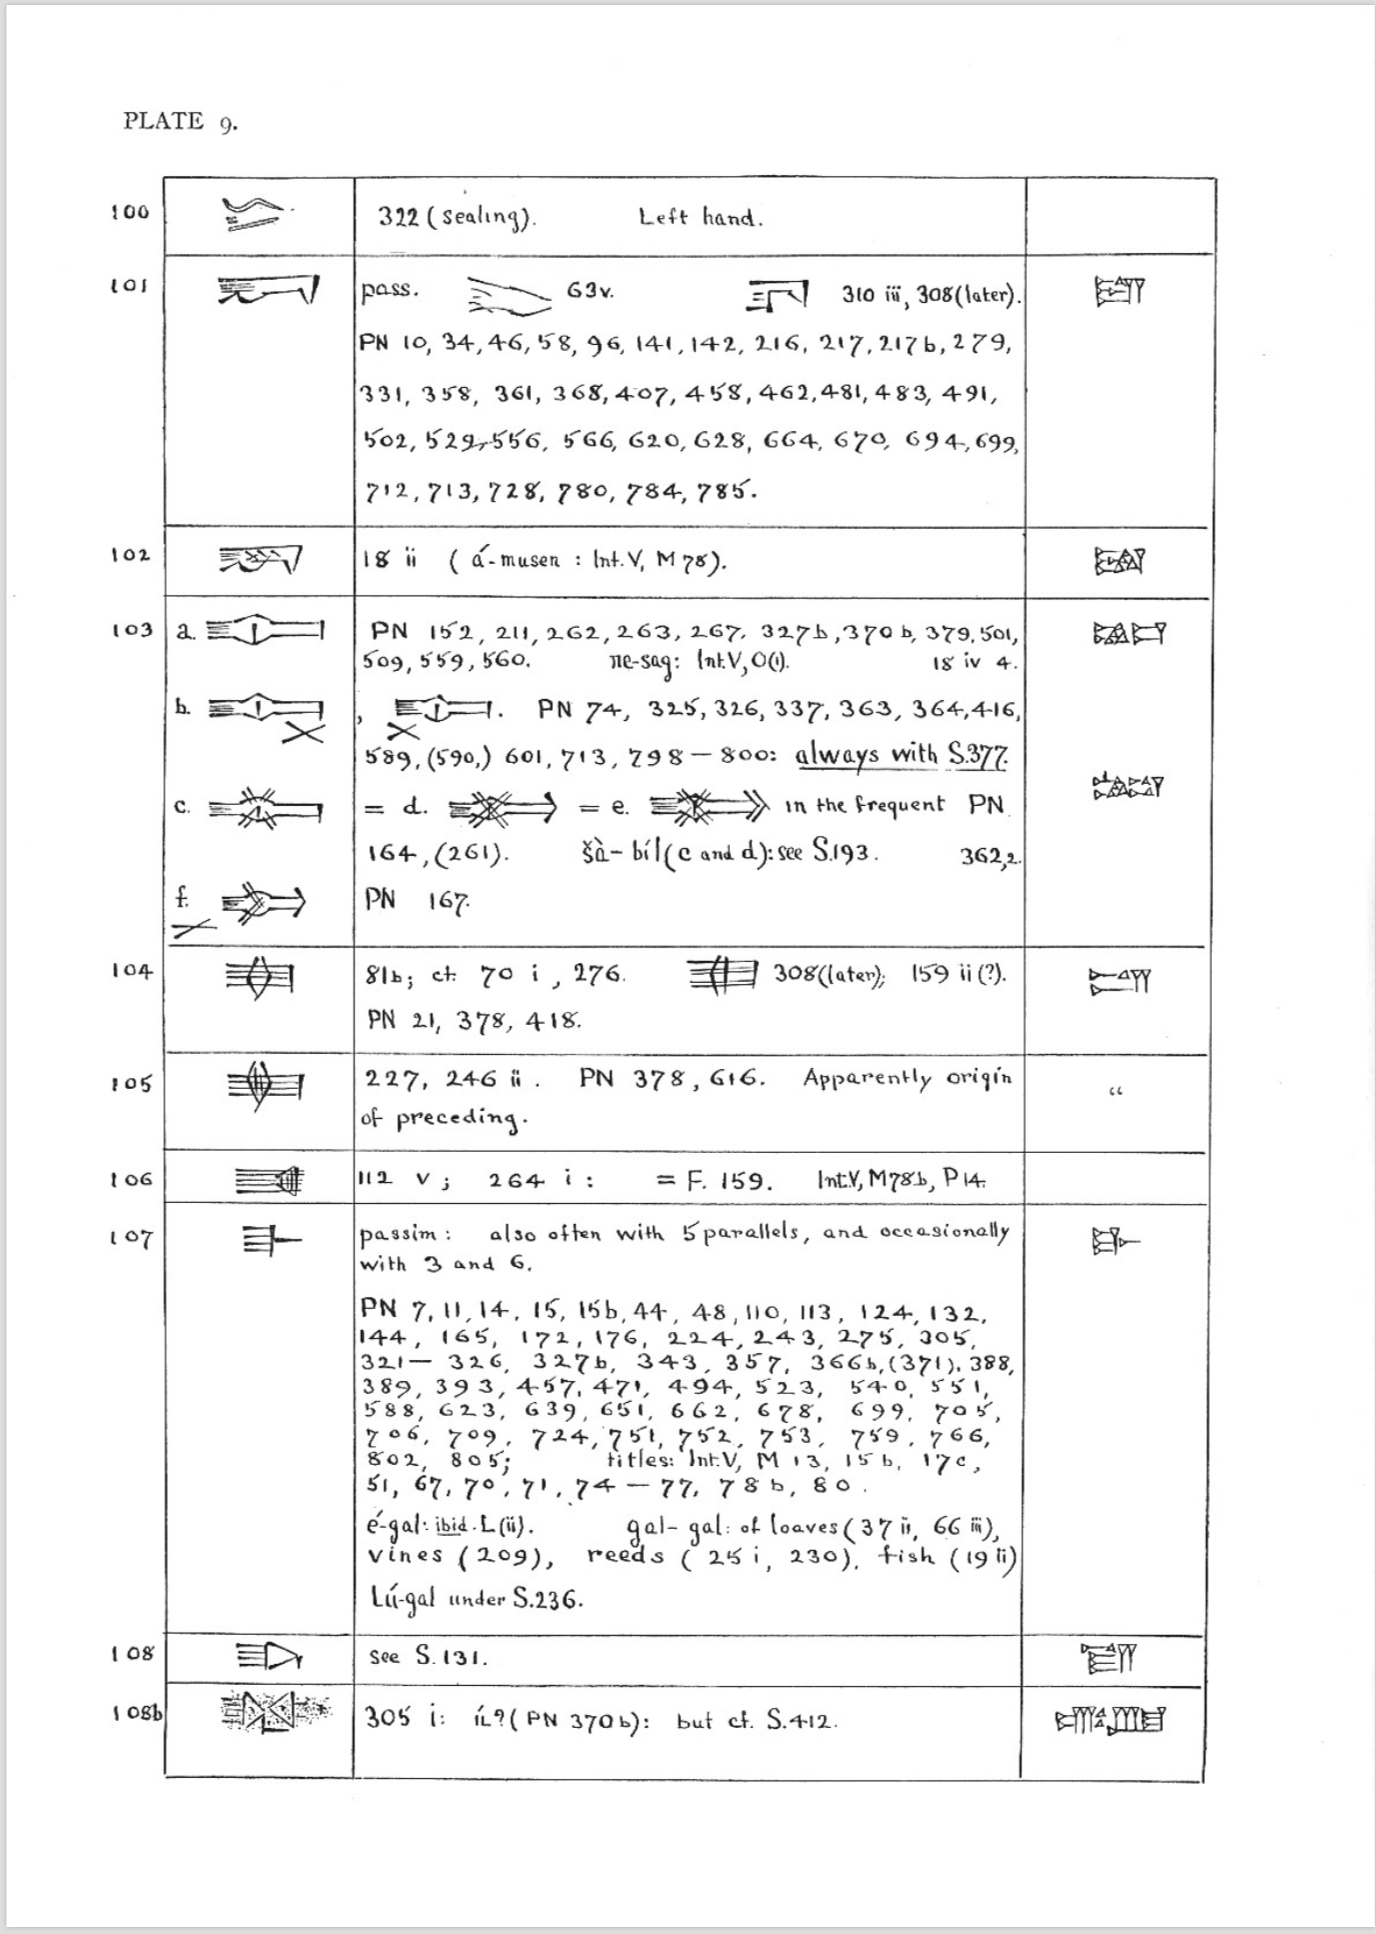 PLATE 9.
100 322 (sealing). Left hand.
101 pass. 63v. 310 iii, 308(later).
PN 10, 34, 46, 58, 96, 141, 142, 216, 217, 217b, 279,
331, 358, 361, 368, 407, 458, 462, 481, 483, 491,
502, 529, 556, 566, 620, 628, 664, 670, 694, 699,
712, 713, 728, 780, 784, 785.
102 18 ii (á-musen : Int.V, M 78).
103 a. PN 152, 211, 262, 263, 267, 327b, 370 b, 379, 501,
509, 559, 560. ne-sag: Int.V, O(i). 18 iv 4.
b. , . PN 74, 325, 326, 337, 363, 364, 416,
589, (590,) 601, 713, 798 — 800: always with S.377.
c. = d. = e. in the frequent PN
164, (261). šà-bíl (c and d): see S.193. 362,2.
f. PN 167.
104 81b; cf. 70 i, 276. 308(later); 159 ii (?).
PN 21, 378, 418.
105 227, 246 ii. PN 378, 616. Apparently origin “
of preceding.
106 112 v; 264 i: = F. 159. Int.V, M78b, P 14.
107 passim: also often with 5 parallels, and occasionally
with 3 and 6.
PN 7, 11, 14, 15, 15b, 44, 48, 110, 113, 124, 132,
144, 165, 172, 176, 224, 243, 275, 305,
321 — 326, 327b, 343, 357, 366b, (371), 388,
389, 393, 457, 471, 494, 523, 540, 551,
588, 623, 639, 651, 662, 678, 699, 705,
706, 709, 724, 751, 752, 753, 759, 766,
802, 805; titles: Int.V, M 13, 15 b, 17c,
51, 67, 70, 71, 74 — 77, 78 b, 80.
é-gal: ibid. L(ii). gal-gal: of loaves (37 ii, 66 iii),
vines (209), reeds (25 i, 230), fish (19 ii)
Lú-gal under S.236.
108 see S.131.
108b 305 i: íL? (PN 370b): but cf. S.412.